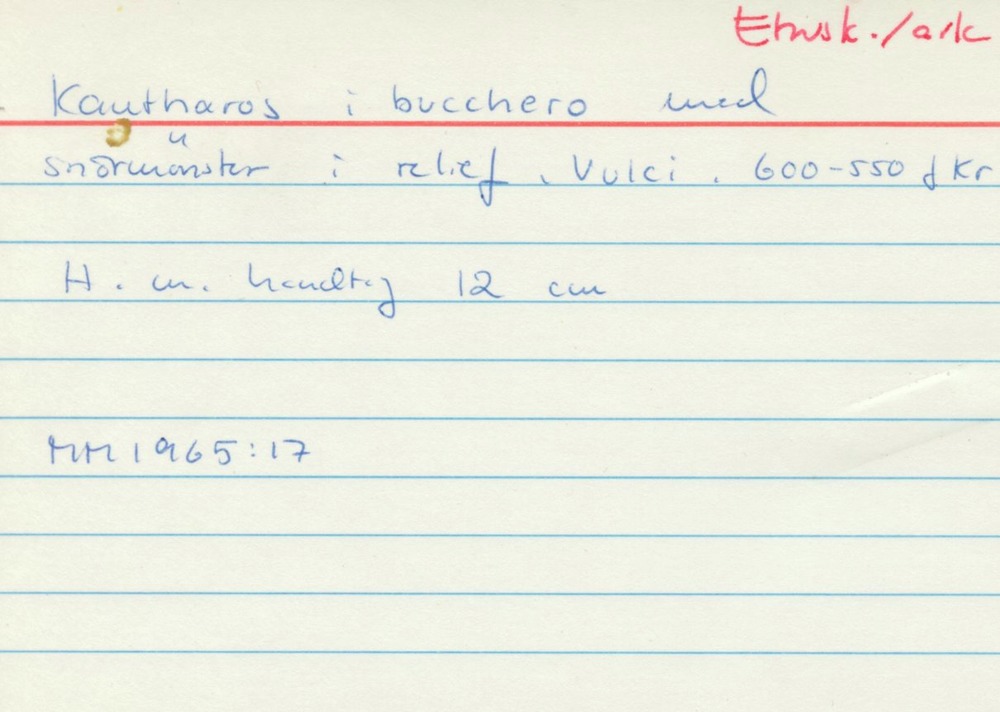 Etrusk./ark
Kantharos i bucchero med
snörmönster i relief. Vulci. 600-550 f Kr
H. m. handtag 12 cm
MM 1965:17